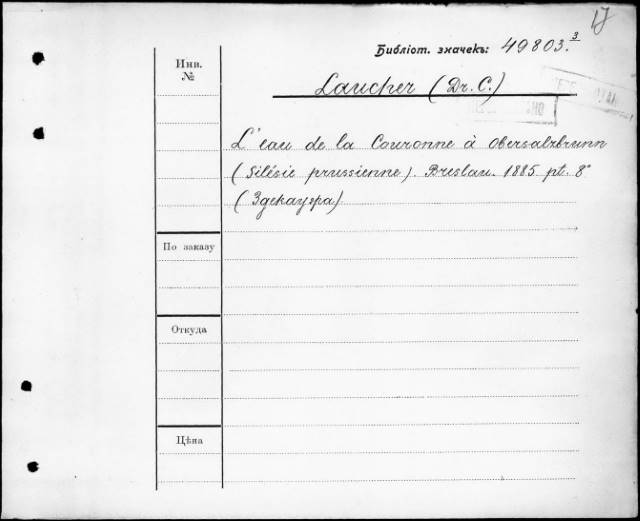 17
Библіот. значекъ: 49803.3
Инв.
№
Laucher (Dr. C.)
L'eau de la Couronne à Obersalzbrunn
(Silésie prussienne). Breslau. 1885. pt. 8°
(Здекауэра)
По заказу
Откуда
Цѣна